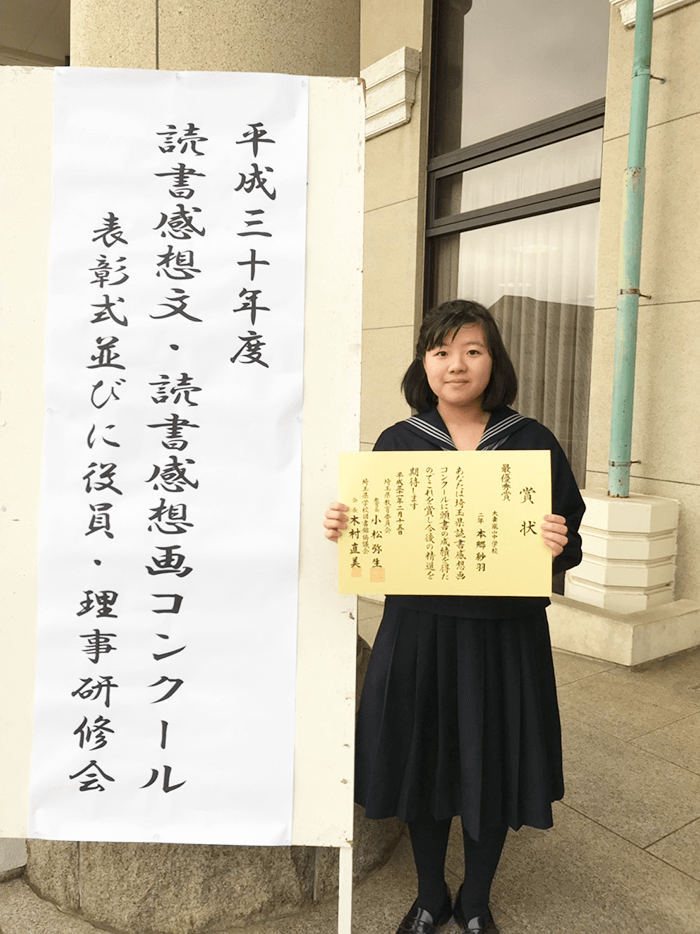 平成三十年度
読書感想文・読書感想画コンクール
表彰式並びに役員・理事研修会
賞状
最優秀賞
大妻嵐山中学校
二年 本郷紗羽
あなたは埼玉県読書感想画
コンクールに頭書の成績を得た
のでこれを賞し今後の精進を
期待します
平成三一年二月十五日
埼玉県教育委員会
教育長 小松弥生
埼玉県学校図書館協議会
会長 木村直美